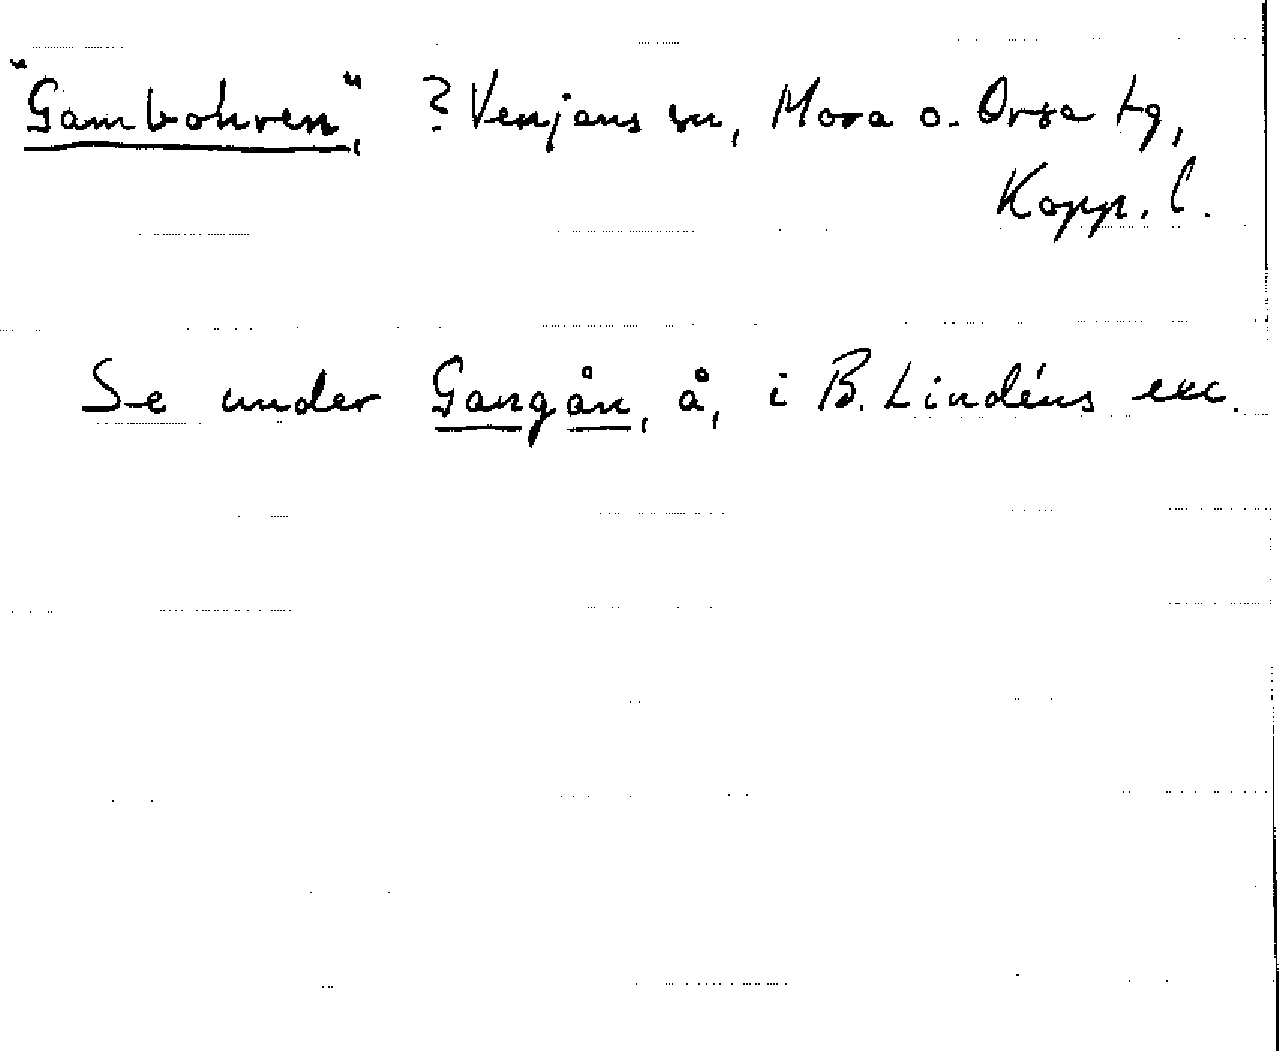 "Gambohren", ? Venjans sn, Mora o. Orsa tg,
Kopp. l.
Se under Gangån, å, i B. Lindéns exc.